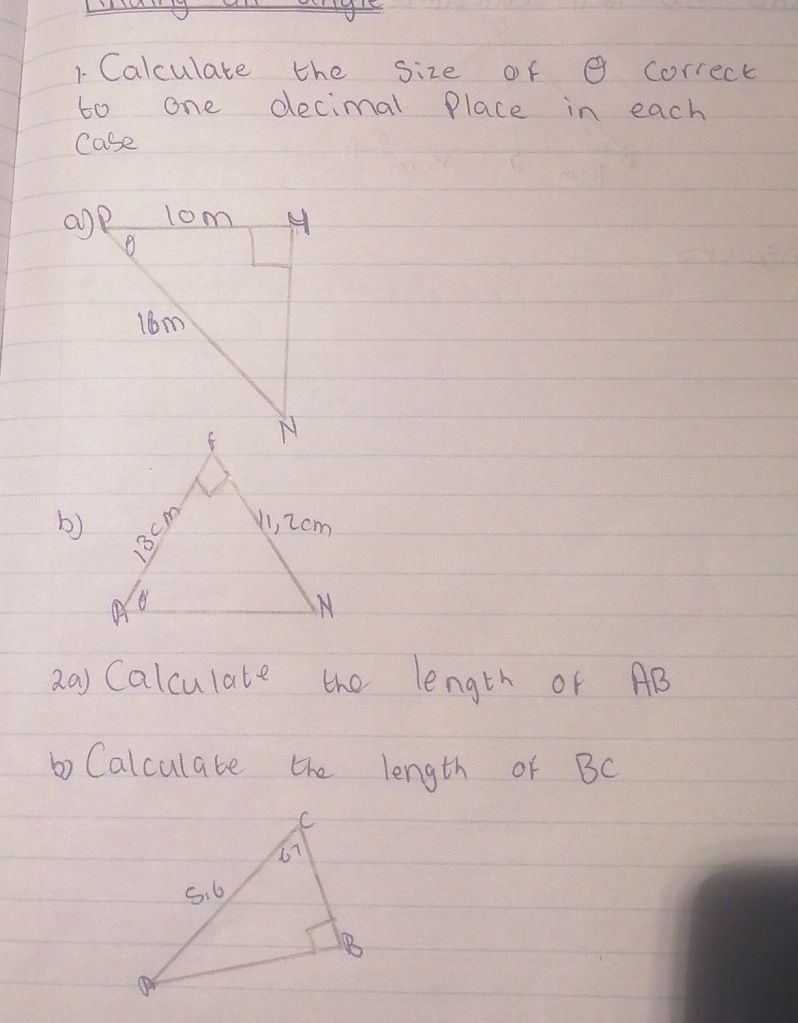 Finding an angle
1. Calculate the size of θ correct
to one decimal place in each
case
a) P 10m H
θ
16m
N
f
b) 13cm 11,2cm
A θ N
2a) Calculate the length of AB
b) Calculate the length of BC
C
67
5,6
B
A